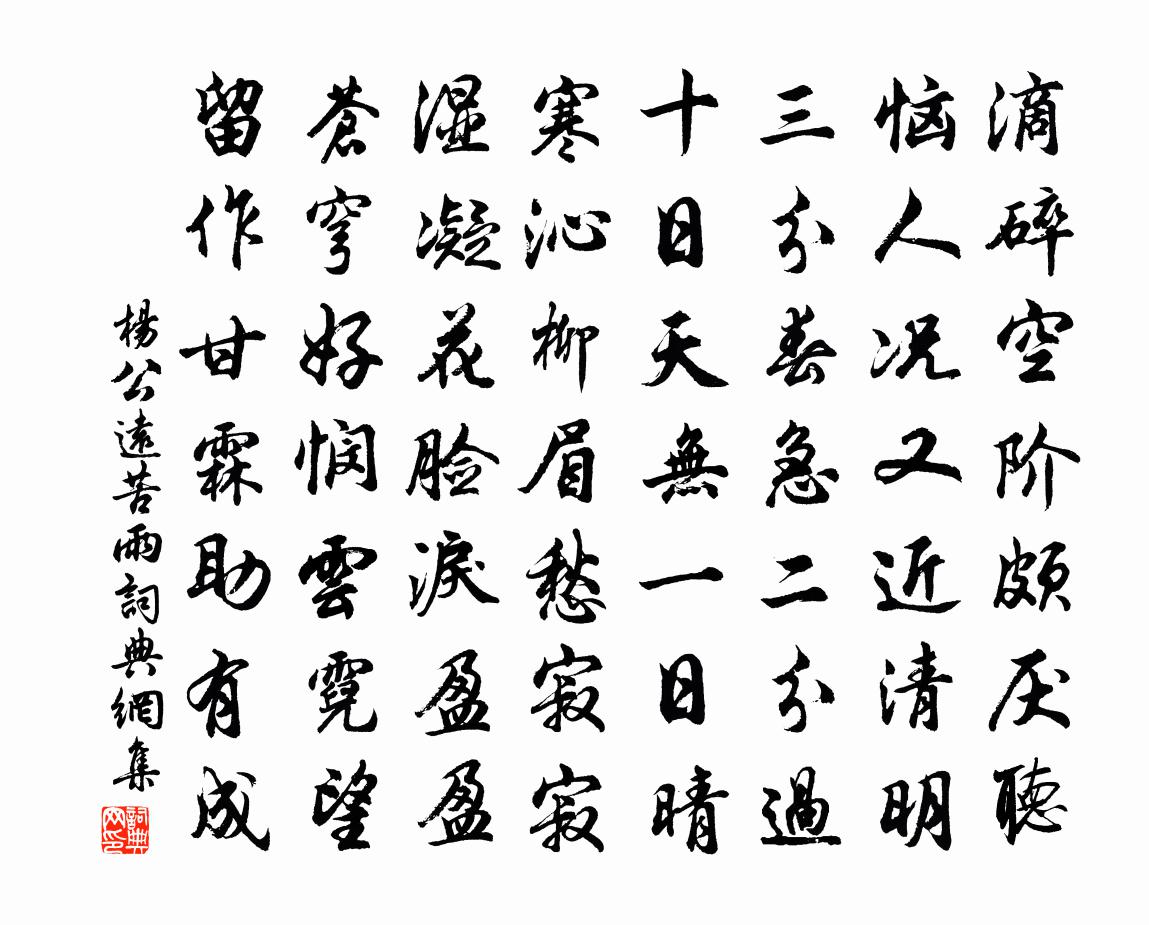 滴碎空阶颇厌聽
恼人况又近清明
三分春急二分過
十日天無一日晴
寒沁柳眉愁寂寂
湿凝花脸淚盈盈
蒼穹好悯雲霓望
留作甘霖助有成
楊公遠苦雨詞典網集
詞典网印